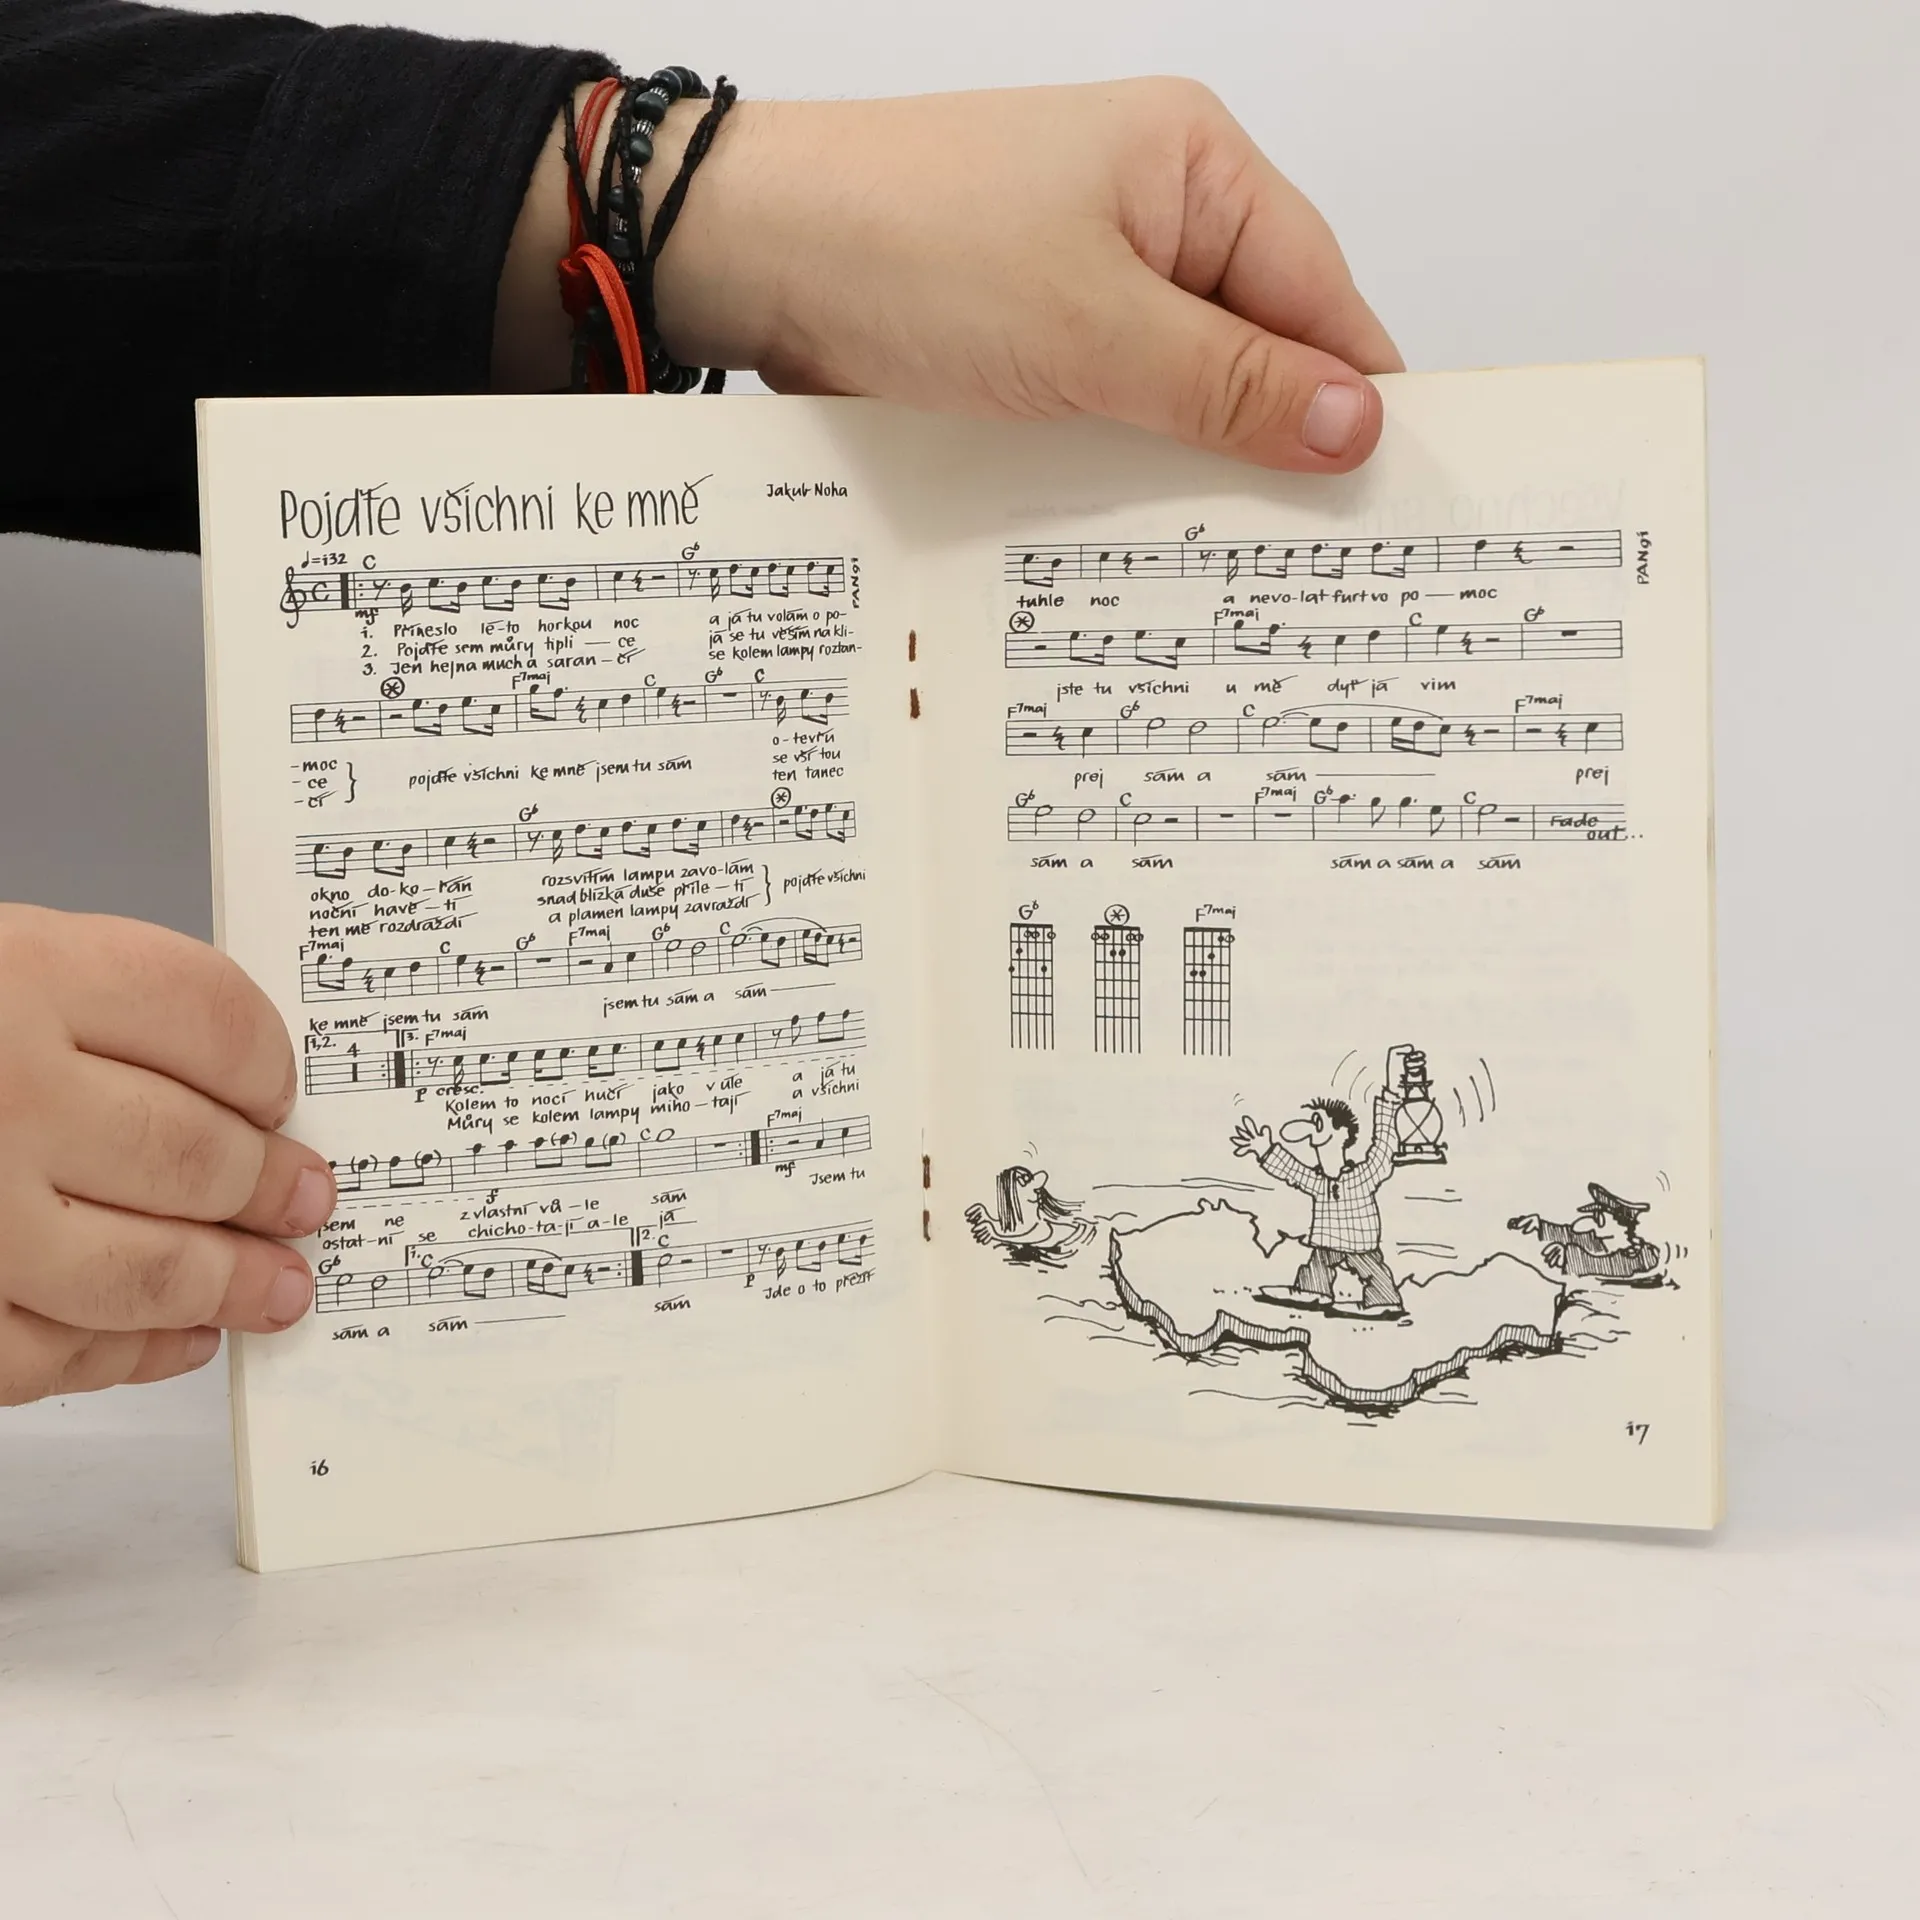 Pojďte všichni ke mně
Jakub Noha
♩=132 C G6
PANgí
mf
1. Přineslo lé-to horkou noc a já tu volám o po-
2. Pojďte sem můry tiplí — ce já se tu věším na kli-
3. Jen hejna much a saran — čí se kolem lampy roztan-
F7maj C G6 C
-moc o-tevřu
-ce } pojďte všichni ke mně jsem tu sám se vší tou
-čí ten tanec
G6
okno do-ko-řán rozsvítím lampu zavo-lám
noční havě-tí snad blízká duše přile-tí } pojďte všichni
ten mě rozdráždí a plamen lampy zavraždí
F7maj C G6 F7maj G6 C
ke mně jsem tu sám jsem tu sám a sám
1,2. 4 3. F7maj
p cresc.
Kolem to nocí hučí jako v úle a já tu
Můry se kolem lampy miho-tají a všichni
C F7maj
f mf
jsem ne zvlastní vů-le sám Jsem tu
ostat-ní se chicho-ta-jí a-le já
G6 1. C 2. C
p
sám a sám sám Jde o to přežít
16
G6
PANgí
tuhle noc a nevo-lat furt vo po — moc
F7maj C G6
jste tu všichni u mě dyť já vím
F7maj G6 C F7maj
prej sám a sám prej
G6 C F7maj G6 C
Fade out...
sám a sám sám a sám a sám
G6 F7maj
17